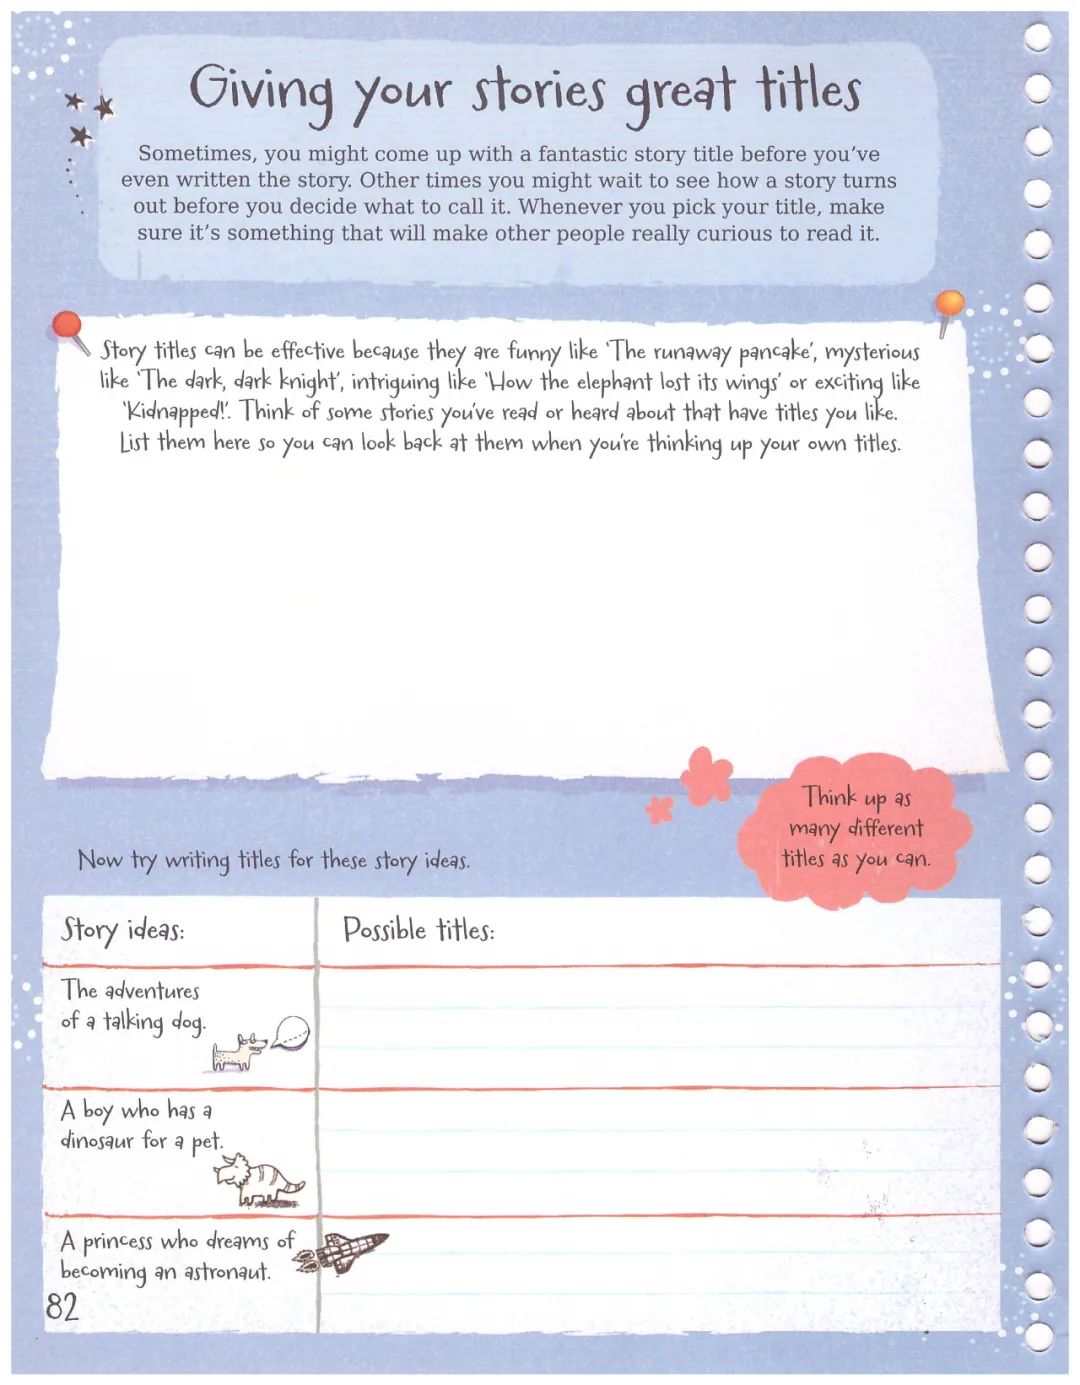 Giving your stories great titles
Sometimes, you might come up with a fantastic story title before you've
even written the story. Other times you might wait to see how a story turns
out before you decide what to call it. Whenever you pick your title, make
sure it's something that will make other people really curious to read it.
Story titles can be effective because they are funny like 'The runaway pancake', mysterious
like 'The dark, dark knight', intriguing like 'How the elephant lost its wings' or exciting like
'Kidnapped!'. Think of some stories you've read or heard about that have titles you like.
List them here so you can look back at them when you're thinking up your own titles.
Think up as
many different
titles as you can.
Now try writing titles for these story ideas.
Story ideas:
Possible titles:
The adventures
of a talking dog.
A boy who has a
dinosaur for a pet.
A princess who dreams of
becoming an astronaut.
82